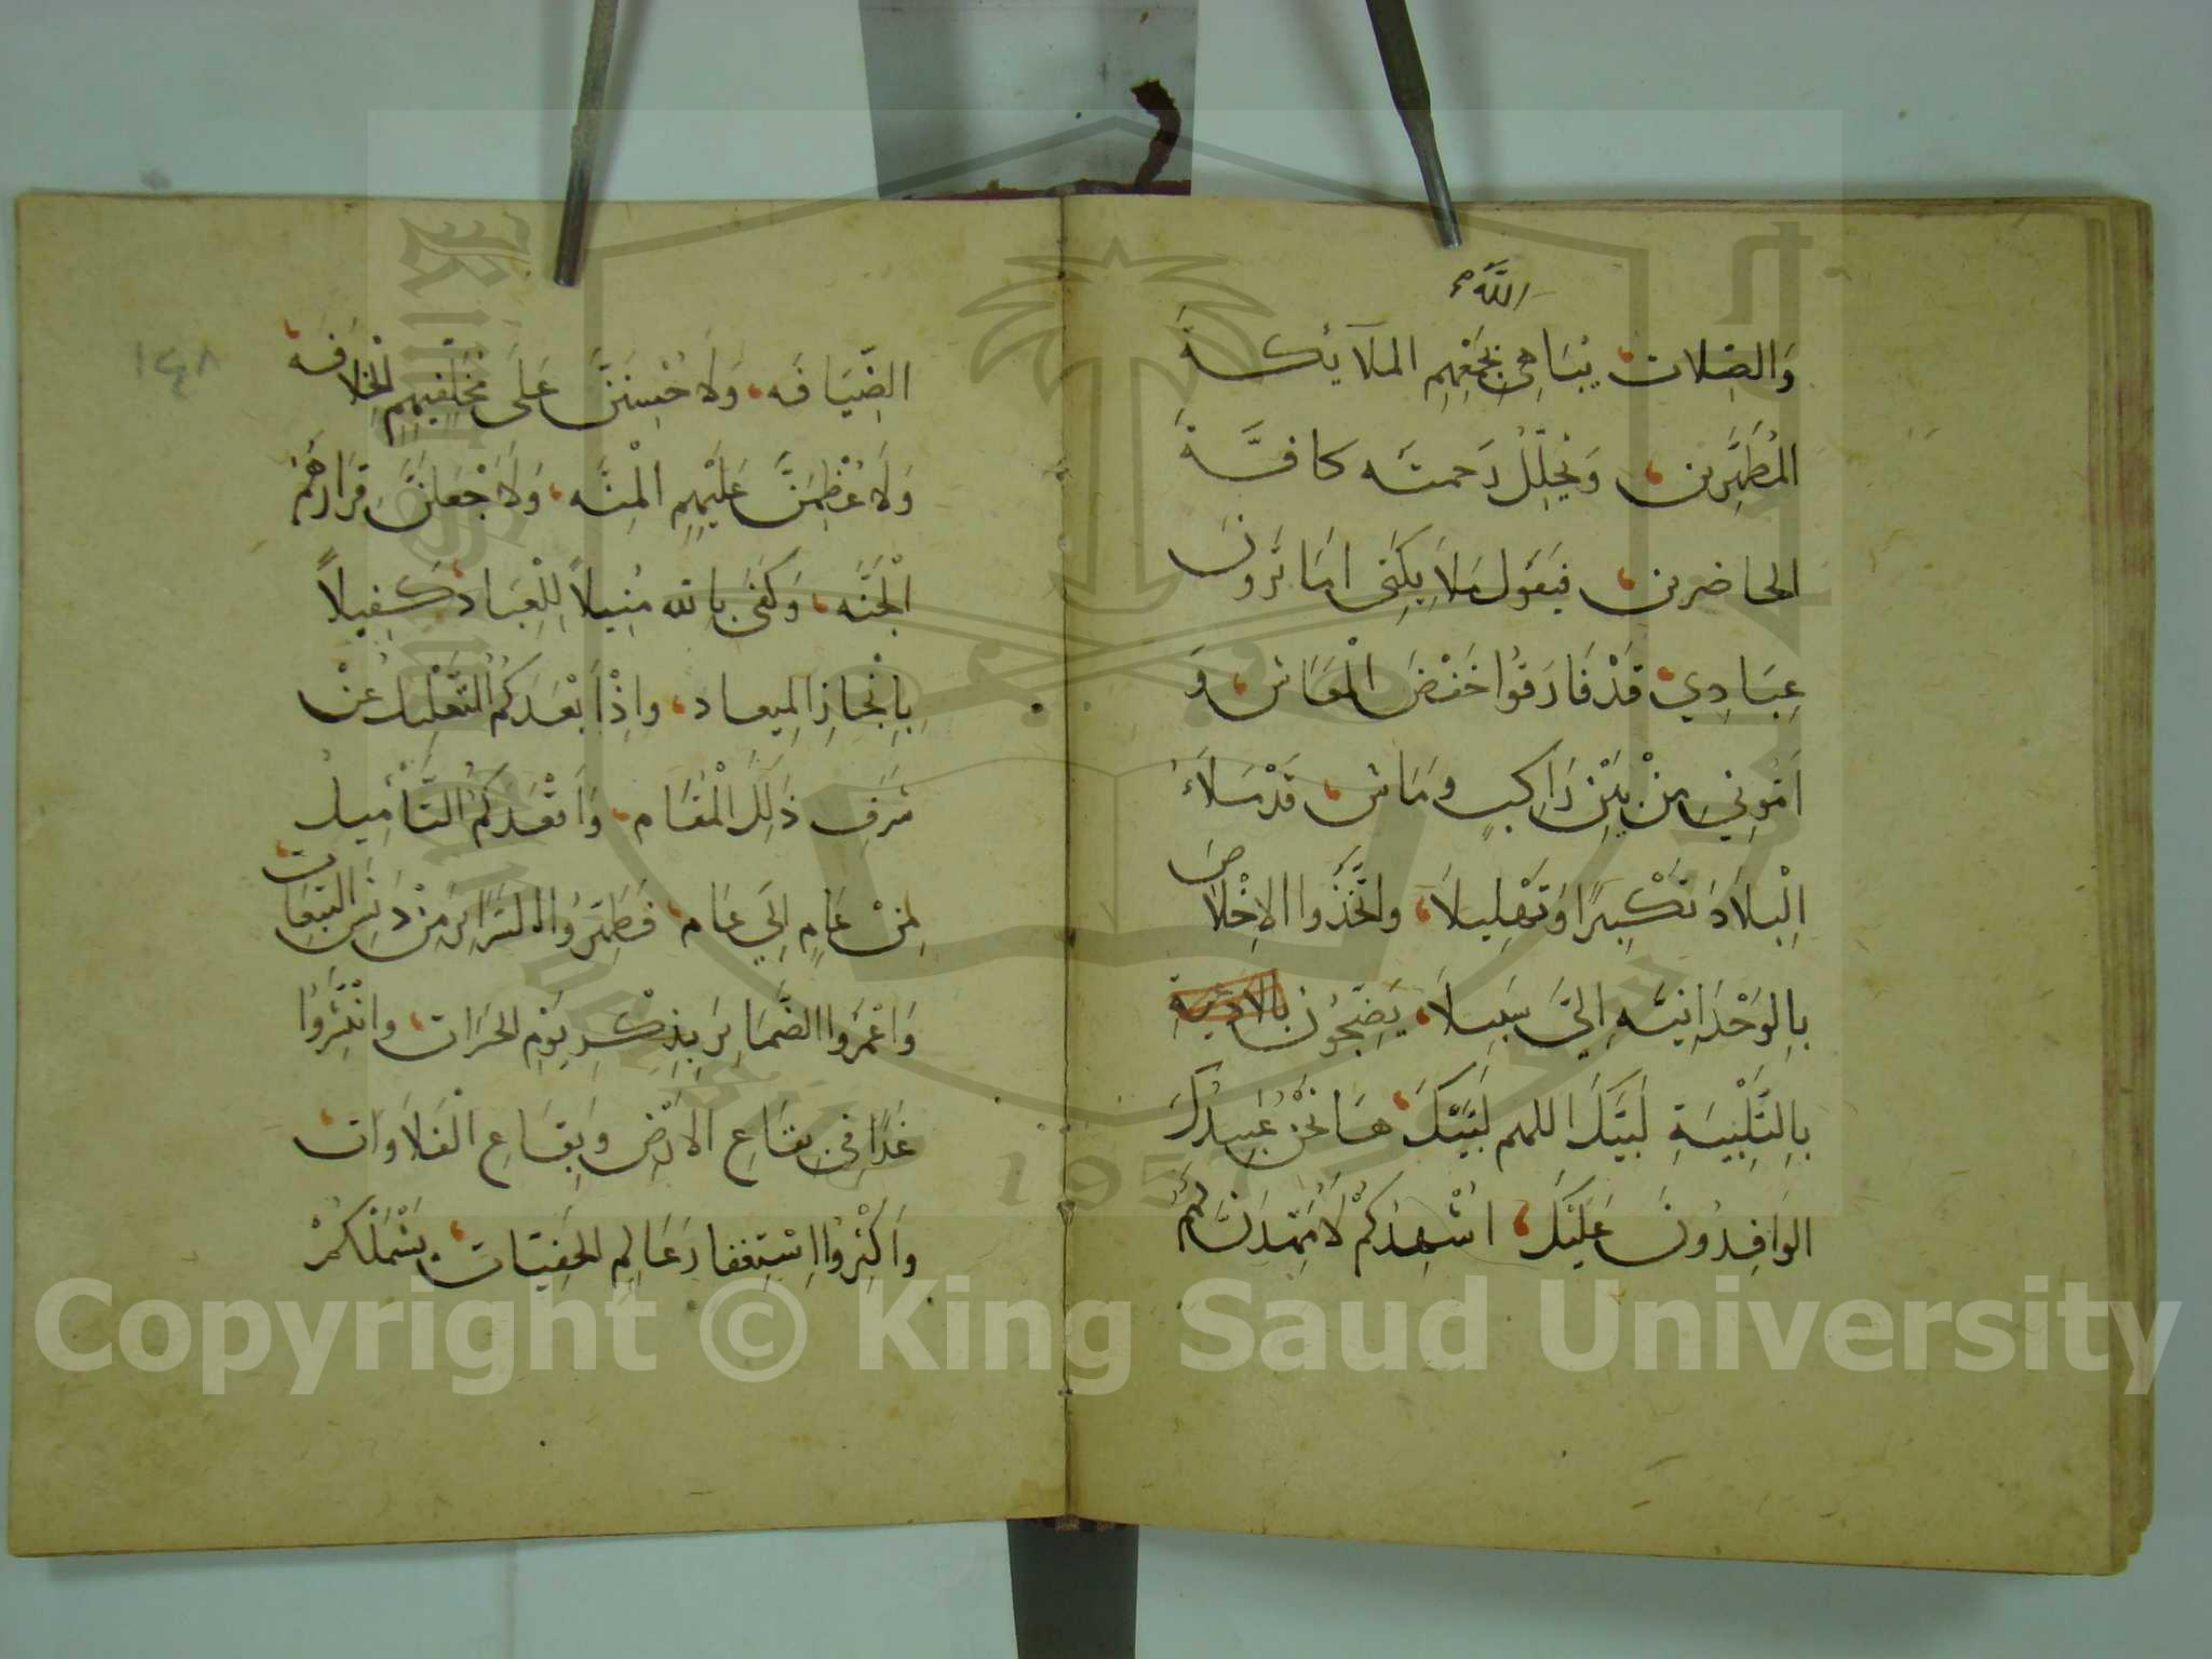 اللَّهُ
وَالصِّلات يُبَاهِي بِجَمْعِهِم الملَايكَةَ
المُطَهَّرِين وَيُجَلِّلُ رَحمته كافَّةَ
الحاضرين فيَقول مَلَايِكَتِي امَا تَرَونَ
عِبَادِي قَدْ فَارَقُوا خَفْضَ الْمَعَاش وَ
اَمُّونِي مِنْ بَيْنِ رَاكبٍ ومَاش قَدْ مَلَاءُ
الْبِلَادَ تَكْبِيرًا وَتَهْلِيلاً واتَّخَذُوا الاِخْلاصَ
بِالوَحْدَانِيَّه اِلَيَّ سَبِيلاً يَضِجُّونَ بالادعية
بِالتَّلْبِيَةِ لَبَّيْكَ اللهم لَبَّيْكَ هَا نَحْنُ عَبِيدُكَ
الوَافِدُونَ عَلَيْكَ اُشْهِدُكُمْ لَاُمَهِّدَنَّ لَهُمُ
١٤٨
الضِّيَافَه وَلَاُحْسِنَنَّ عَلَى مُخَلَّفِيهِم الْخِلَافَه
وَلَاُعْظِمَنَّ عَلَيْهِم الْمِنَّه وَلَاَجْعَلَنَّ قَرَارَهُمُ
الْجَنَّه وَكَفَى بالله مُنِيلاً لِلْعِبَاد كَفِيلاً
بِاِنْجَازِ الِميعاد واِذْ اَبْعَدَكُمُ التَّعْلِيلُ عَنْ
شَرَفِ ذَلِكَ الْمَقَام وَاَقْعَدَكُمُ التَّأْمِيلُ
مِنْ عَامٍ اِلَي عَام فَطَهِّرُوا السَّرَائِرَ مِنْ دَنَسِ التَّبِعَات
وَاعْمُرُوا الضَّمَائِرَ بِذِكْرِ يَوْمِ الحَسَرَات وانْتَشِرُوا
غَدًا فِي بِقَاعِ الاَرْضِ وَبِقَاعِ الْفَلَاوَات
وَاَكْثِرُوا اِسْتِغفارَ عَالِمِ الخَفِيَّات يَشْمَلْكُمْ
Copyright © King Saud University
1957